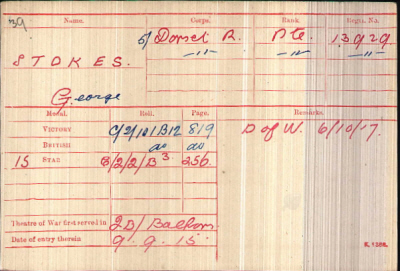 39
Name. Corps. Rank. Regtl. No.
6/ Dorset R. Pte. 13929
STOKES. -"- -"- -"-
George
Medal. Roll. Page. Remarks.
VICTORY C/2/101B12 819 D of W. 6/10/17.
BRITISH do do
15 STAR C/2/2/B3 256.
Theatre of War first served in 2D/ Balkans
Date of entry therein 9.9.15.
K. 1380.